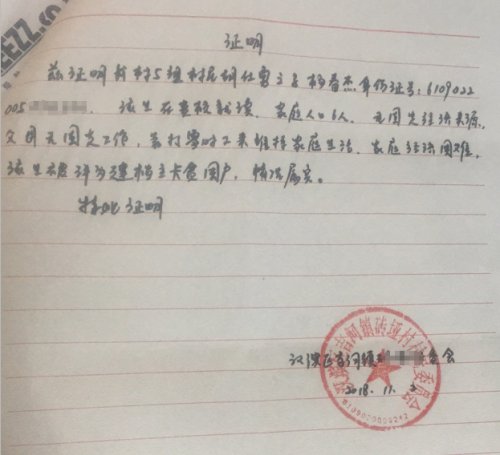 证明
兹证明我村5组村民胡仕勇之子胡春杰身份证号:6109022
005 该生在贵校就读。家庭人口5人,无固定经济来源,
父母无固定工作,靠打零时工来维持家庭生活,家庭经济困难,
该生被评为建档立卡贫困户,情况属实。
特此证明
汉滨区吉河镇 委会
2018.11.2